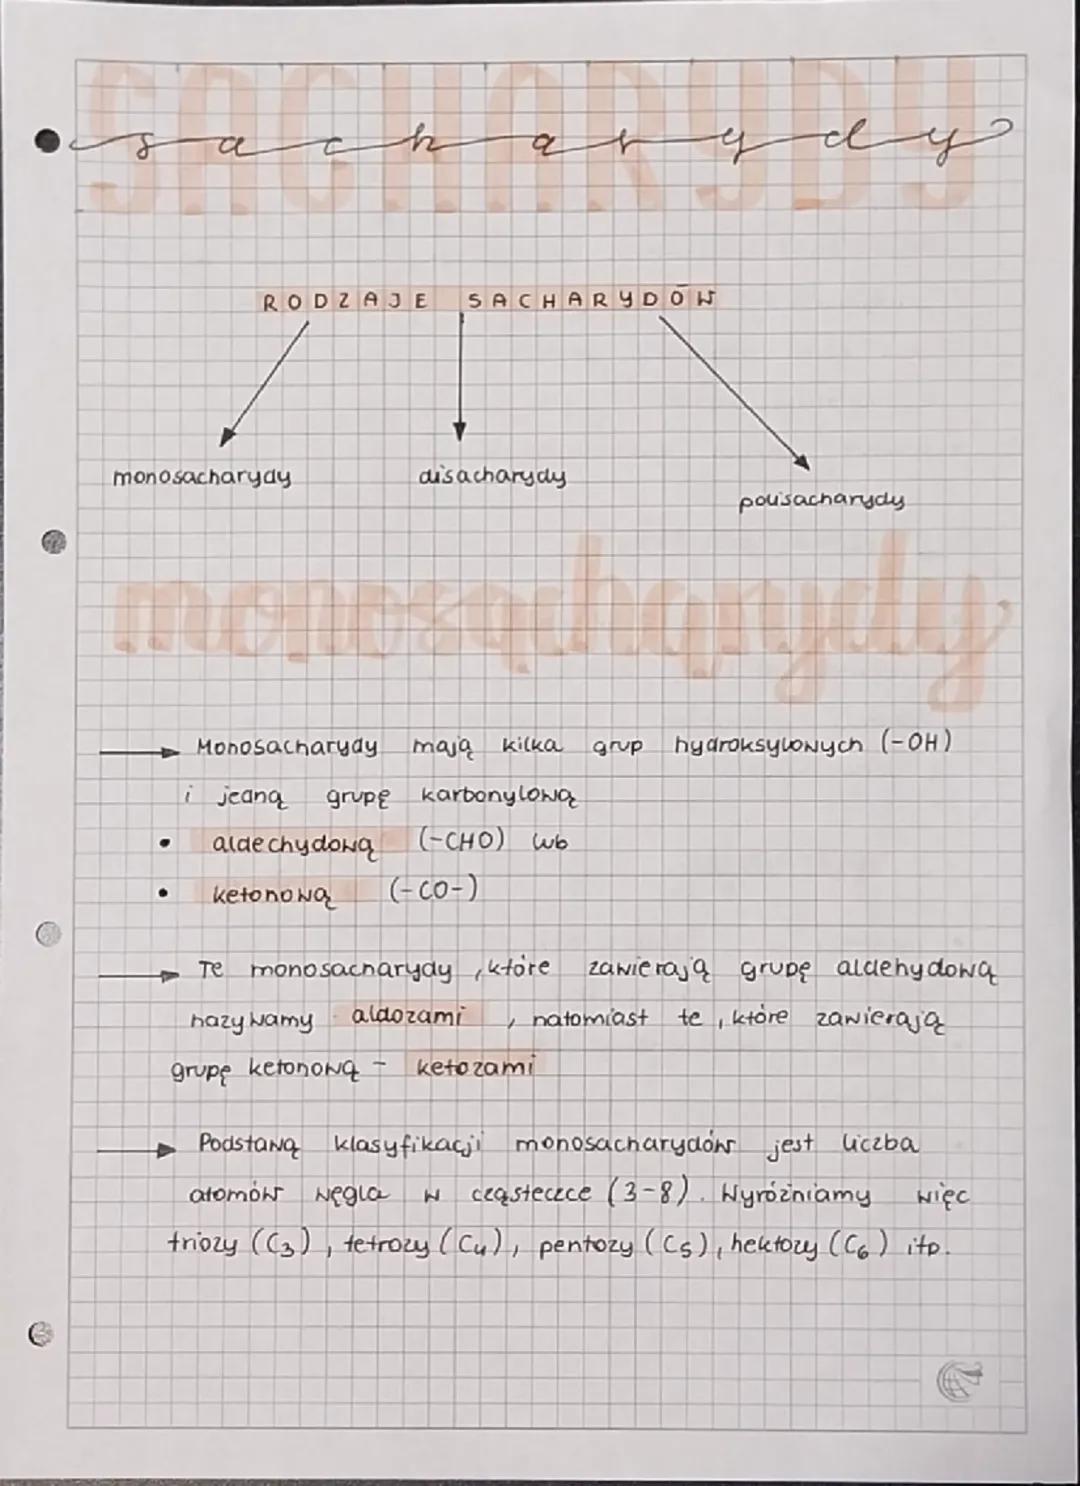 SACHARYDY
sacharydy
RODZAJE SACHARYDÓW
monosacharydy disacharydy
polisacharydy
monosacharydy
Monosacharydy mają kilka grup hydroksylowych (-OH)
i jedną grupę karbonylową
• aldechydową (-CHO) lub
• ketonową (-CO-)
Te monosacharydy, które zawierają grupę aldehydową
nazywamy aldozami, natomiast te, które zawierają
grupę ketonową - ketozami
Podstawą klasyfikacji monosacharydów jest liczba
atomów węgla w cząsteczce (3-8). Wyróżniamy więc
triozy (C₃), tetrozy (C₄), pentozy (C₅), hektozy (C₆) itp.